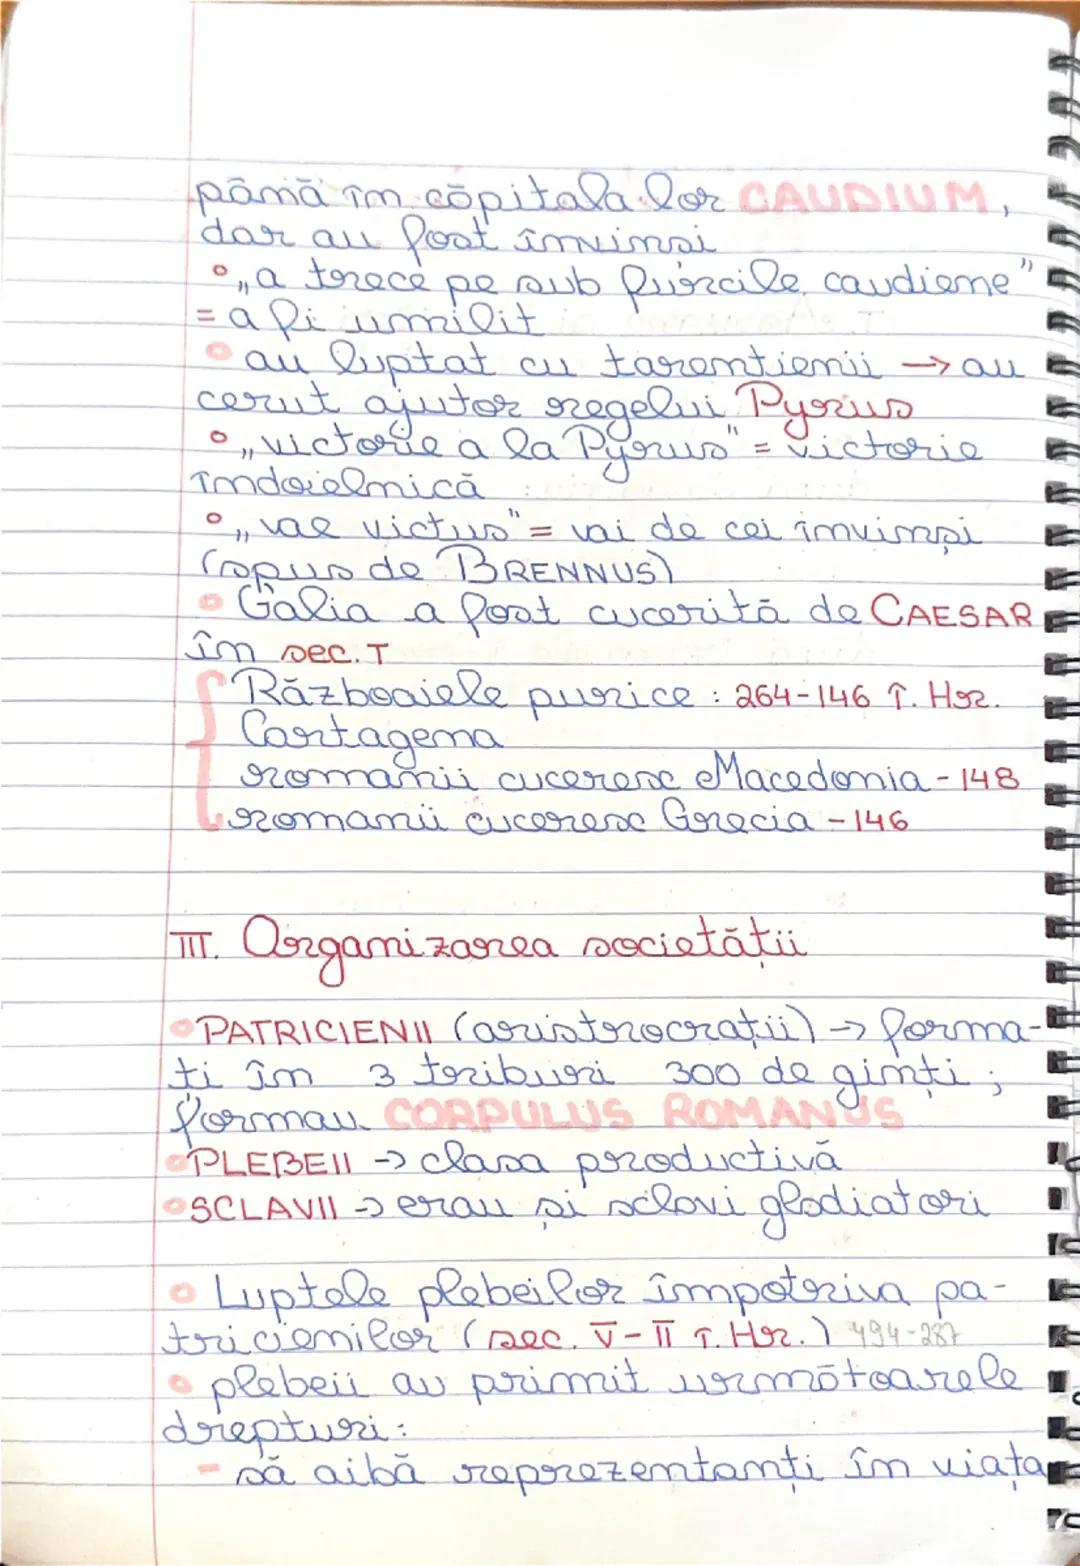 până în capitala lor CAUDIUM,
dar au fost învinși
„a trece pe sub furcile caudiene"
= a fi umilit
au luptat cu tarentienii → au
cerut ajutor regelui Pyrius
„victorie a la Pyrus" = victorie
îndoielnică
„vae victus" = vai de cei învinși
(spus de BRENNUS)
Galia a fost cucerită de CAESAR
în sec. I
Războaiele punice : 264-146 î. Hr.
Cartagena
romanii cuceresc Macedonia - 148
romanii cuceresc Grecia - 146
III. Organizarea societății
PATRICIENII (aristrocrații) → forma-
ți în 3 triburi 300 de ginți ;
formau CORPULUS ROMANUS
PLEBEII → clasa productivă
SCLAVII → erau și sclavi gladiatori
Luptele plebeilor împotriva pa-
tricienilor (sec. V-II î. Hr.) 494-287
plebeii au primit urmatoarele
drepturi:
- să aibă reprezentanți în viața